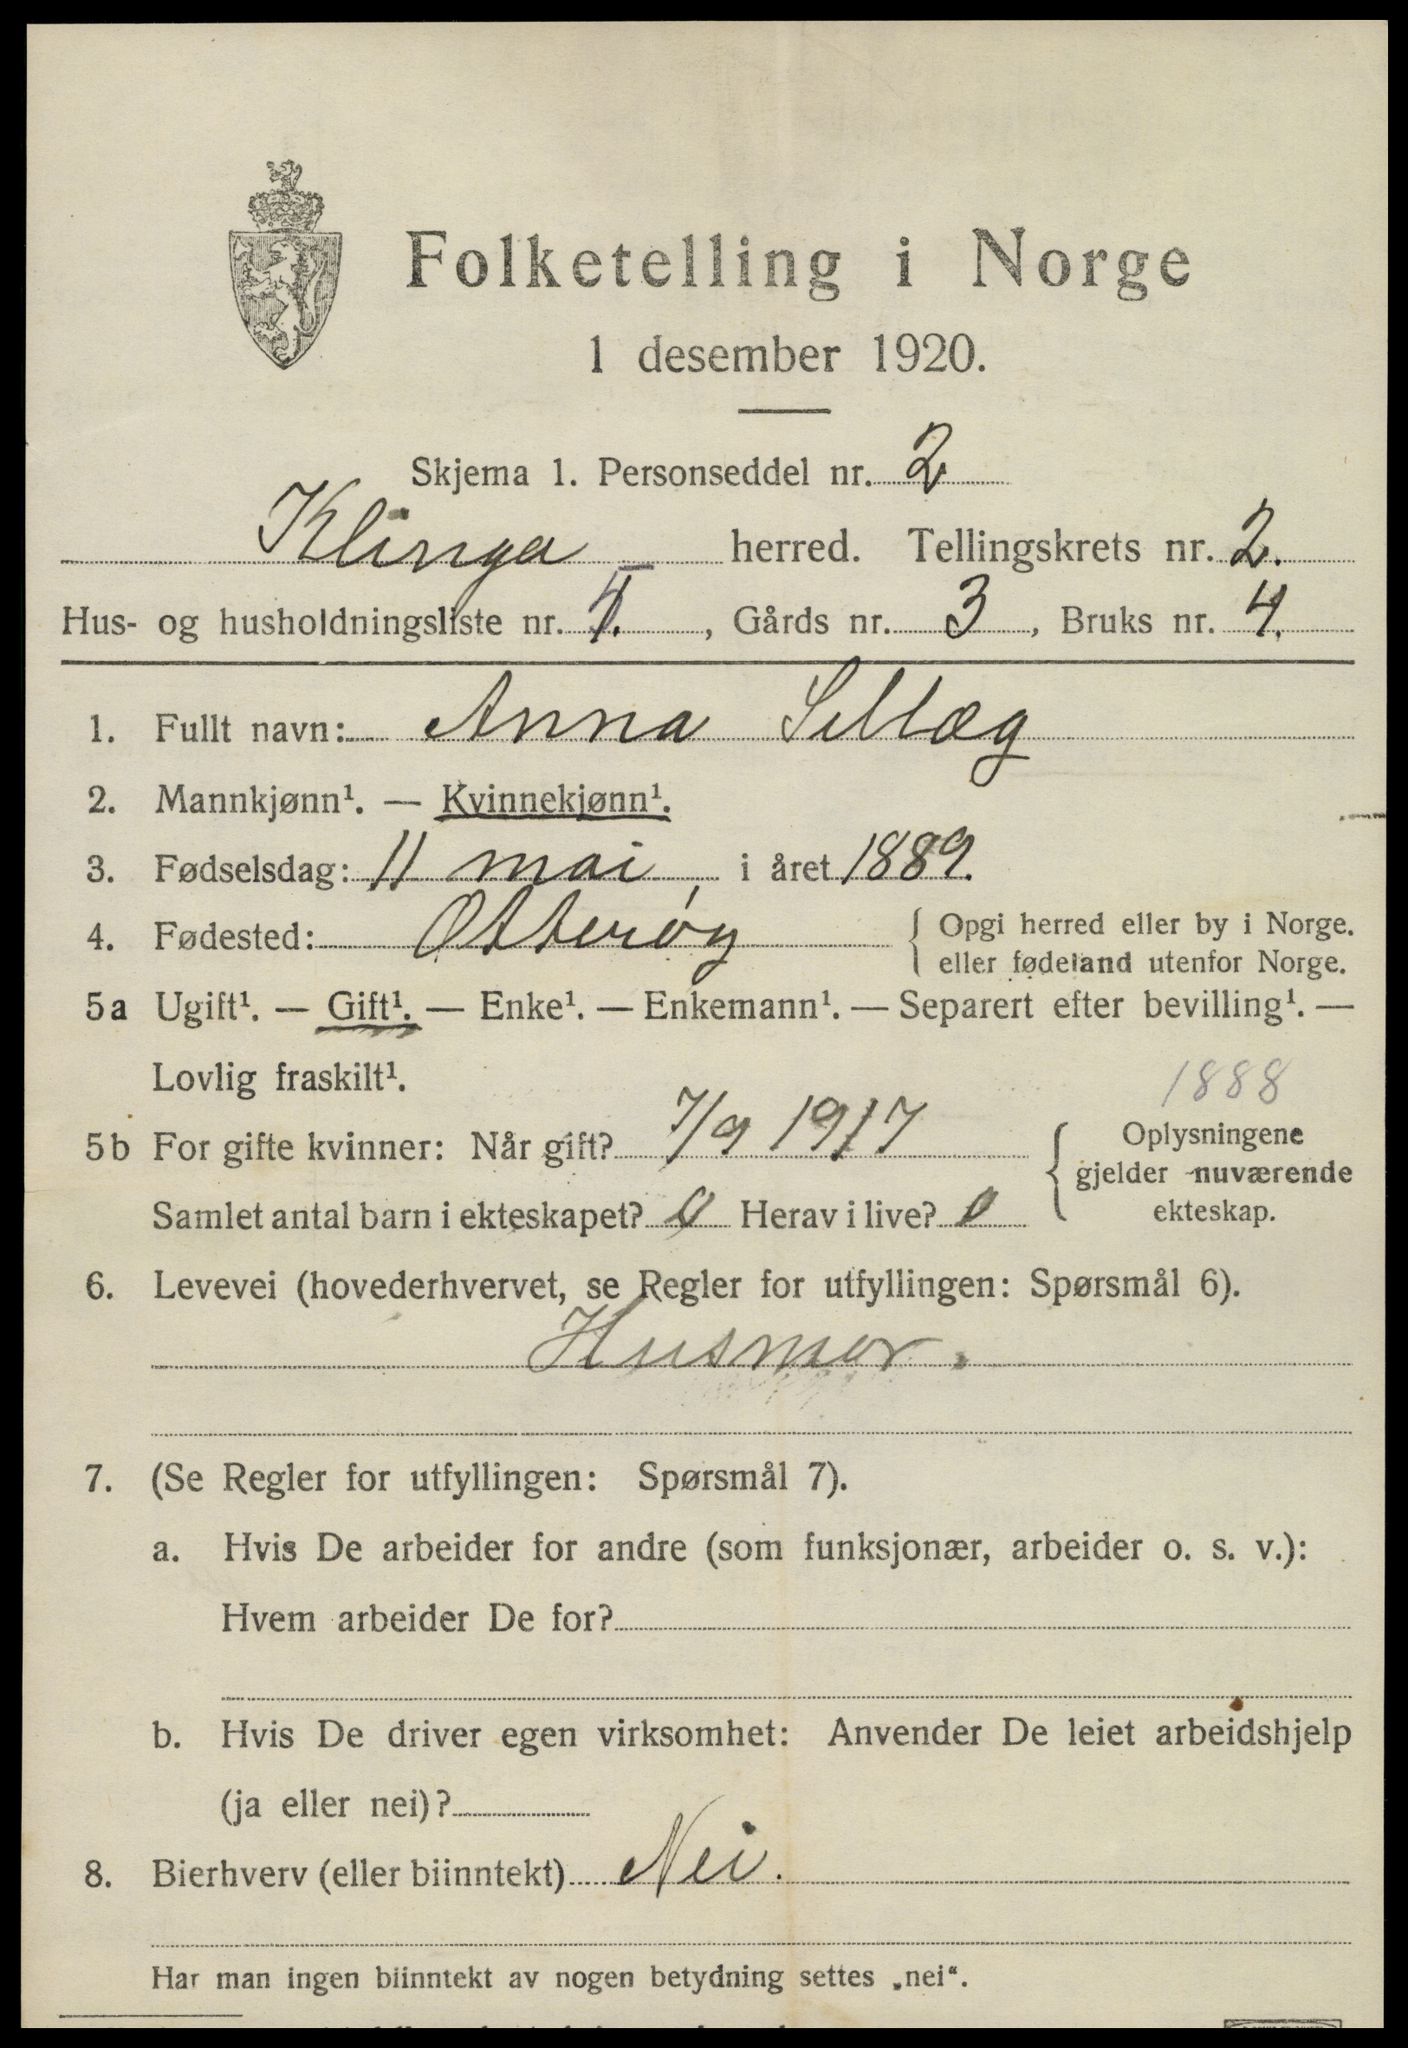 Folketelling i Norge
1 desember 1920.
Skjema 1. Personseddel nr. 2
Klinga herred. Tellingskrets nr. 2.
Hus- og husholdningsliste nr. , Gårds nr. 3, Bruks nr. 4.
1. Fullt navn: Anna Sellæg
2. Mannkjønn¹. — Kvinnekjønn¹.
3. Fødselsdag: 11 mai, i året 1889.
4. Fødested: Otterøy { Opgi herred eller by i Norge.
eller fødeland utenfor Norge.
5a Ugift¹. — Gift¹. — Enke¹. — Enkemann¹. — Separert efter bevilling¹. —
Lovlig fraskilt¹.
1888
5b For gifte kvinner: Når gift? 7/9 1917 { Oplysningene
gjelder nuværende
Samlet antal barn i ekteskapet? 0 Herav i live? 0 ekteskap.
6. Levevei (hovederhvervet, se Regler for utfyllingen: Spørsmål 6).
Husmor.
7. (Se Regler for utfyllingen: Spørsmål 7).
a. Hvis De arbeider for andre (som funksjonær, arbeider o. s. v.):
Hvem arbeider De for?
b. Hvis De driver egen virksomhet: Anvender De leiet arbeidshjelp
(ja eller nei)?
8. Bierhverv (eller biinntekt) Nei.
Har man ingen biinntekt av nogen betydning settes „nei“.